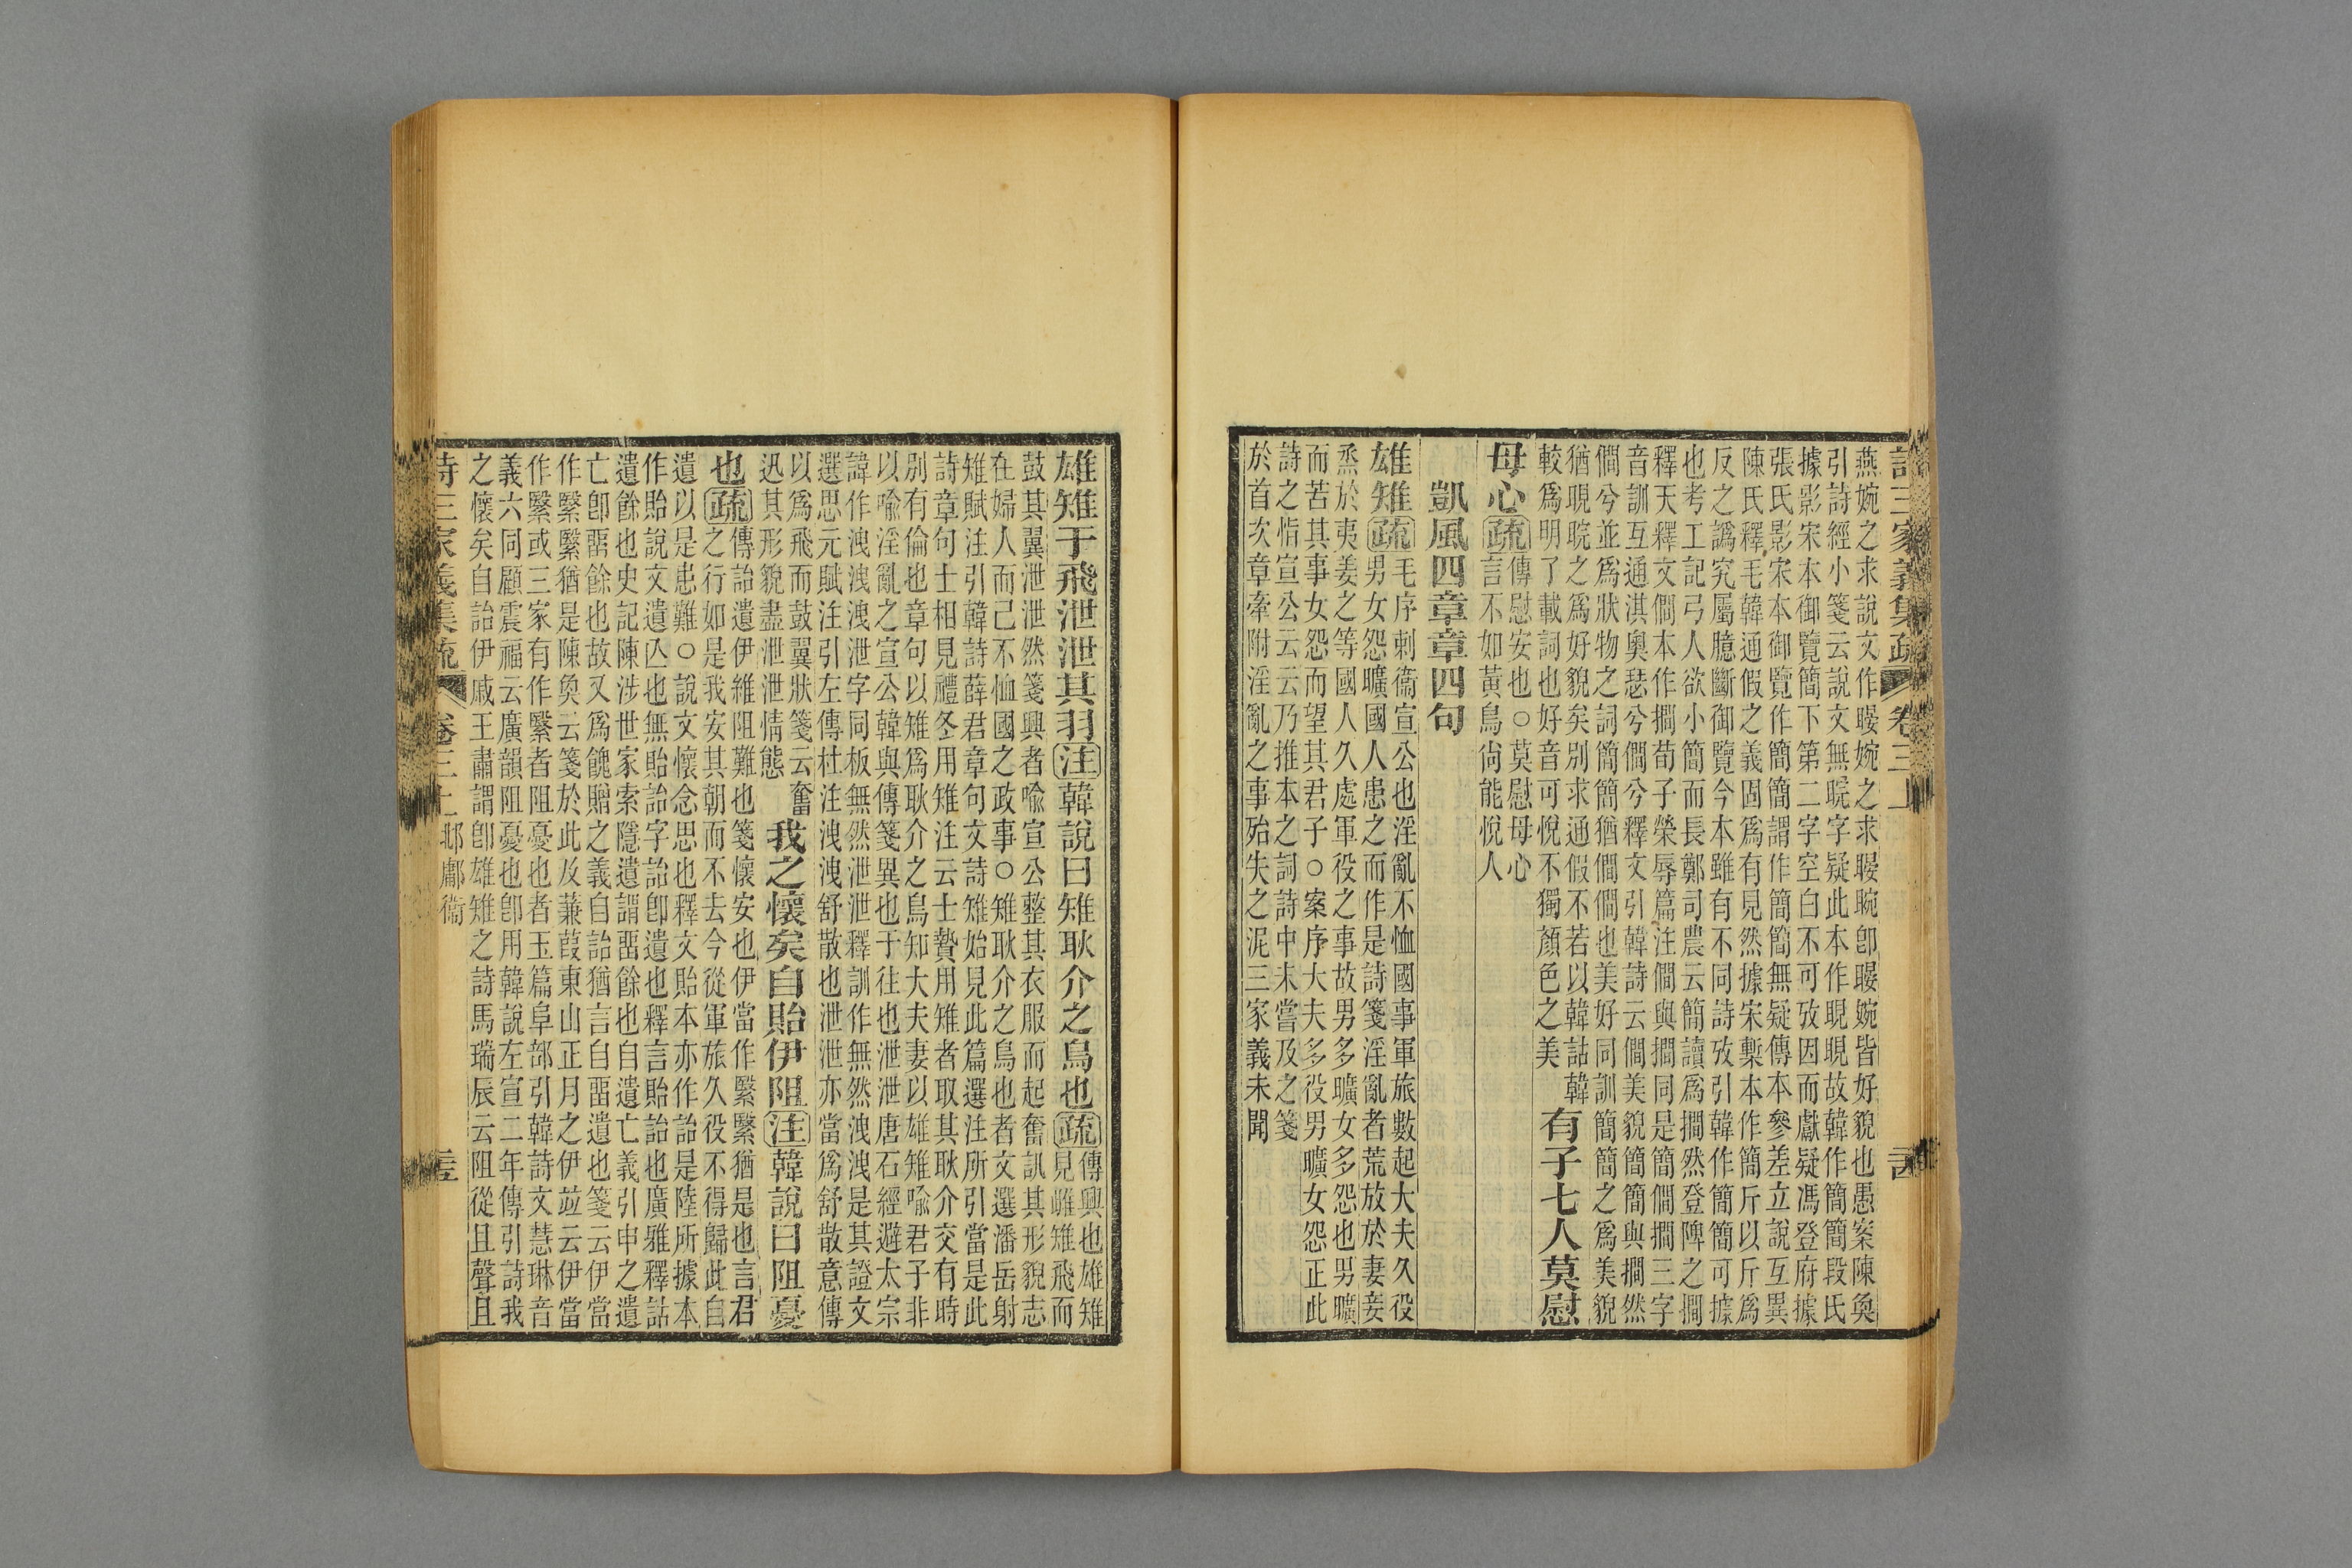 詩三家義集疏 卷三上
燕婉之求說文作暥婉之求暥睕卽暥婉皆好貌也愚案陳奐
引詩經小箋云說文無睆字疑此本作睍睍故韓作簡簡段氏
據影宋本御覽簡下第二字空白不可攷因而獻疑馮登府據
張氏影宋本御覽作簡簡謂作簡簡無疑傳本參差立說互異
陳氏釋毛韓通假之義固爲有見然據宋槧本作簡斤以斤爲
反之譌究屬臆斷御覽今本雖有不同詩攷引韓作簡簡可據
也考工記弓人欲小簡而長鄭司農云簡讀爲撊然登陴之撊
釋天釋文僩本作撊荀子榮辱篇注僩與撊同是簡僩撊三字
音訓互通淇奧瑟兮僩兮釋文引韓詩云僩美貌簡簡與撊然
僩兮並爲狀物之詞簡簡猶僩僩也美好同訓簡簡之爲美貌
猶睍睆之爲好貌矣別求通假不若以韓詁韓
較爲明了載詞也好音可悅不獨顏色之美
有子七人莫慰
母心疏
傳慰安也○莫慰母心
言不如黃鳥尙能悅人
凱風四章章四句
雄雉疏
毛序刺衞宣公也淫亂不恤國事軍旅數起大夫久役
男女怨曠國人患之而作是詩箋淫亂者荒放於妻妾
烝於夷姜之等國人久處軍役之事故男多曠女多怨也男曠
而苦其事女怨而望其君子○案序大夫多役男曠女怨正此
詩之恉宣公云云乃推本之詞詩中未嘗及之箋
於首次章牽附淫亂之事殆失之泥三家義未聞
雄雉于飛泄泄其羽注韓說曰雉耿介之鳥也疏
傳興也雄雉
見雌雉飛而
鼓其翼泄泄然箋興者喻宣公整其衣服而起奮訊其形貌志
在婦人而已不恤國之政事○雉耿介之鳥也者文選潘岳射
雉賦注引韓詩薛君章句文詩雉始見此篇選注所引當是此
詩章句士相見禮冬用雉注云士贄用雉者取其耿介交有時
別有倫也章句以雉爲耿介之鳥知大夫妻以雄雉喻君子非
以喻淫亂之宣公韓與傳箋異也于往也泄泄唐石經避太宗
諱作洩洩洩泄字同板無然泄泄釋訓作無然洩洩是其證文
選思元賦注引左傳杜注洩洩舒散也泄泄亦當爲舒散意傳
以爲飛而鼓翼狀箋云奮
迅其形貌盡泄泄情態
我之懷矣自貽伊阻注韓說曰阻憂
也疏
傳詒遺伊維阻難也箋懷安也伊當作繄繄猶是也言君
之行如是我安其朝而不去今從軍旅久役不得歸此自
遺以是患難○說文懷念思也釋文貽本亦作詒是陸所據本
作貽說文遺亾也無貽詒字詒卽遺也釋言貽詒也廣雅釋詁
遺餘也史記陳涉世家索隱遺謂畱餘也自遺亡義引申之遺
亡卽畱餘也故又爲餽贈之義自詒猶言自畱遺也箋云伊當
作繄繄猶是陳奐云箋於此及蒹葭東山正月之伊竝云伊當
作繄或三家有作繄者阻憂也者玉篇阜部引韓詩文慧琳音
義六同顧震福云廣韻阻憂也卽用韓說左宣二年傳引詩我
之懷矣自詒伊戚王肅謂卽雄雉之詩馬瑞辰云阻從且聲且
詩三家義集疏 卷三上 邶鄘衞